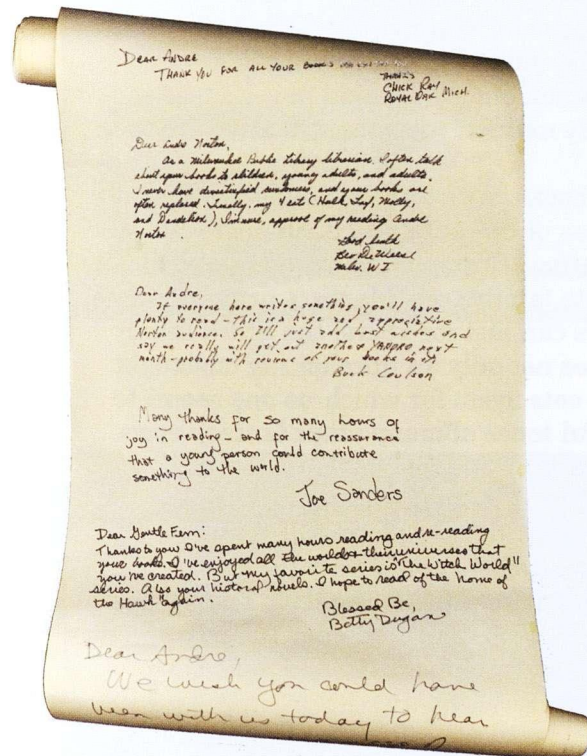 Dear Andre
Thank you for all your books
Thanks
Chick Ray
Royal Oak Mich.
Dear Andre Norton,
As a Milwaukee Public Library librarian, I often talk
about your books to children, young adults, and adults.
I never have dissatisfied customers, and your books are
often replaced. Finally, my 4 cats (Hulk, Molly,
and Dandelion), approve of my reading Andre
Norton
Good health
Bev DeWeese
Milw. WI
Dear Andre,
If everyone here writes something, you'll have
plenty to read - this is a huge and appreciative
Norton audience. So I'll just add best wishes and
say we really will get out another YANDRO next
month - probably with reviews of your books in it
Buck Coulson
Many thanks for so many hours of
joy in reading - and for the reassurance
that a young person could contribute
something to the world.
Joe Sanders
Dear Gentle Fem:
Thanks to you I've spent many hours reading and re-reading
your books. I've enjoyed all the worlds & their universes that
you've created. But my favorite series is "the Witch World"
series. Also your historical novels. I hope to read of the home of
the Hawk again.
Blessed Be,
Betty Dugan
Dear Andre,
We wish you could have
been with us today to hear